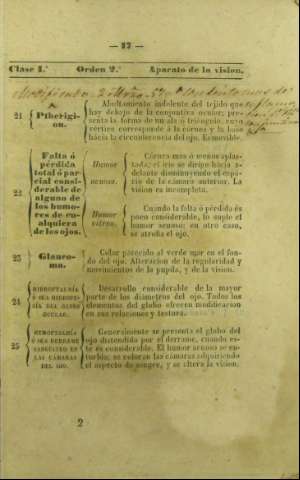 — 17 —
Clase 1.ª Orden 2.º Aparato de la vision.
21 Pterigion.
Abultamiento indolente del tejido que
hay debajo de la conjuntiva ocular; pre
senta la forma de un ala ó triángulo, cuyo
vértice corresponde á la córnea y la base
hácia la circunferencia del ojo. Es movible.
22 Falta ó
pérdida
total ó par
cial consi-
derable de
alguno de
los humo-
res de cu-
alquiera
de los ojos.
Humor
acuoso.
Córnea mas ó menos aplas-
tada; el iris se dirige hácia a-
delante disminuyendo el espa-
cio de la cámara anterior. La
vision es incompleta.
Humor
vítreo.
Cuando la falta ó pérdida es
poco considerable, lo suple el
humor acuoso; en otro caso,
se atrofia el ojo.
23 Glauco-
ma.
Color parecido al verde mar en el fon-
do del ojo. Alteracion de la regularidad y
movimientos de la pupila, y de la vision.
24 HIDROFTALMIA
Ó SEA HIDROPE-
SÍA DEL GLOBO
OCULAR.
Desarrollo considerable de la mayor
parte de los diámetros del ojo. Todos los
elementos del globo ofrecen modificacion
en sus relaciones y testura.
25 HEMOFTALMIA
Ó SEA DERRAME
SANGUÍNEO EN
LAS CÁMARAS
DEL OJO.
Generalmente se presenta el globo del
ojo distendido por el derrame, cuando es-
te es considerable. El humor acuoso se en-
turbia; se coloran las cámaras adquiriendo
el aspecto de sangre, y se altera la vision.
2